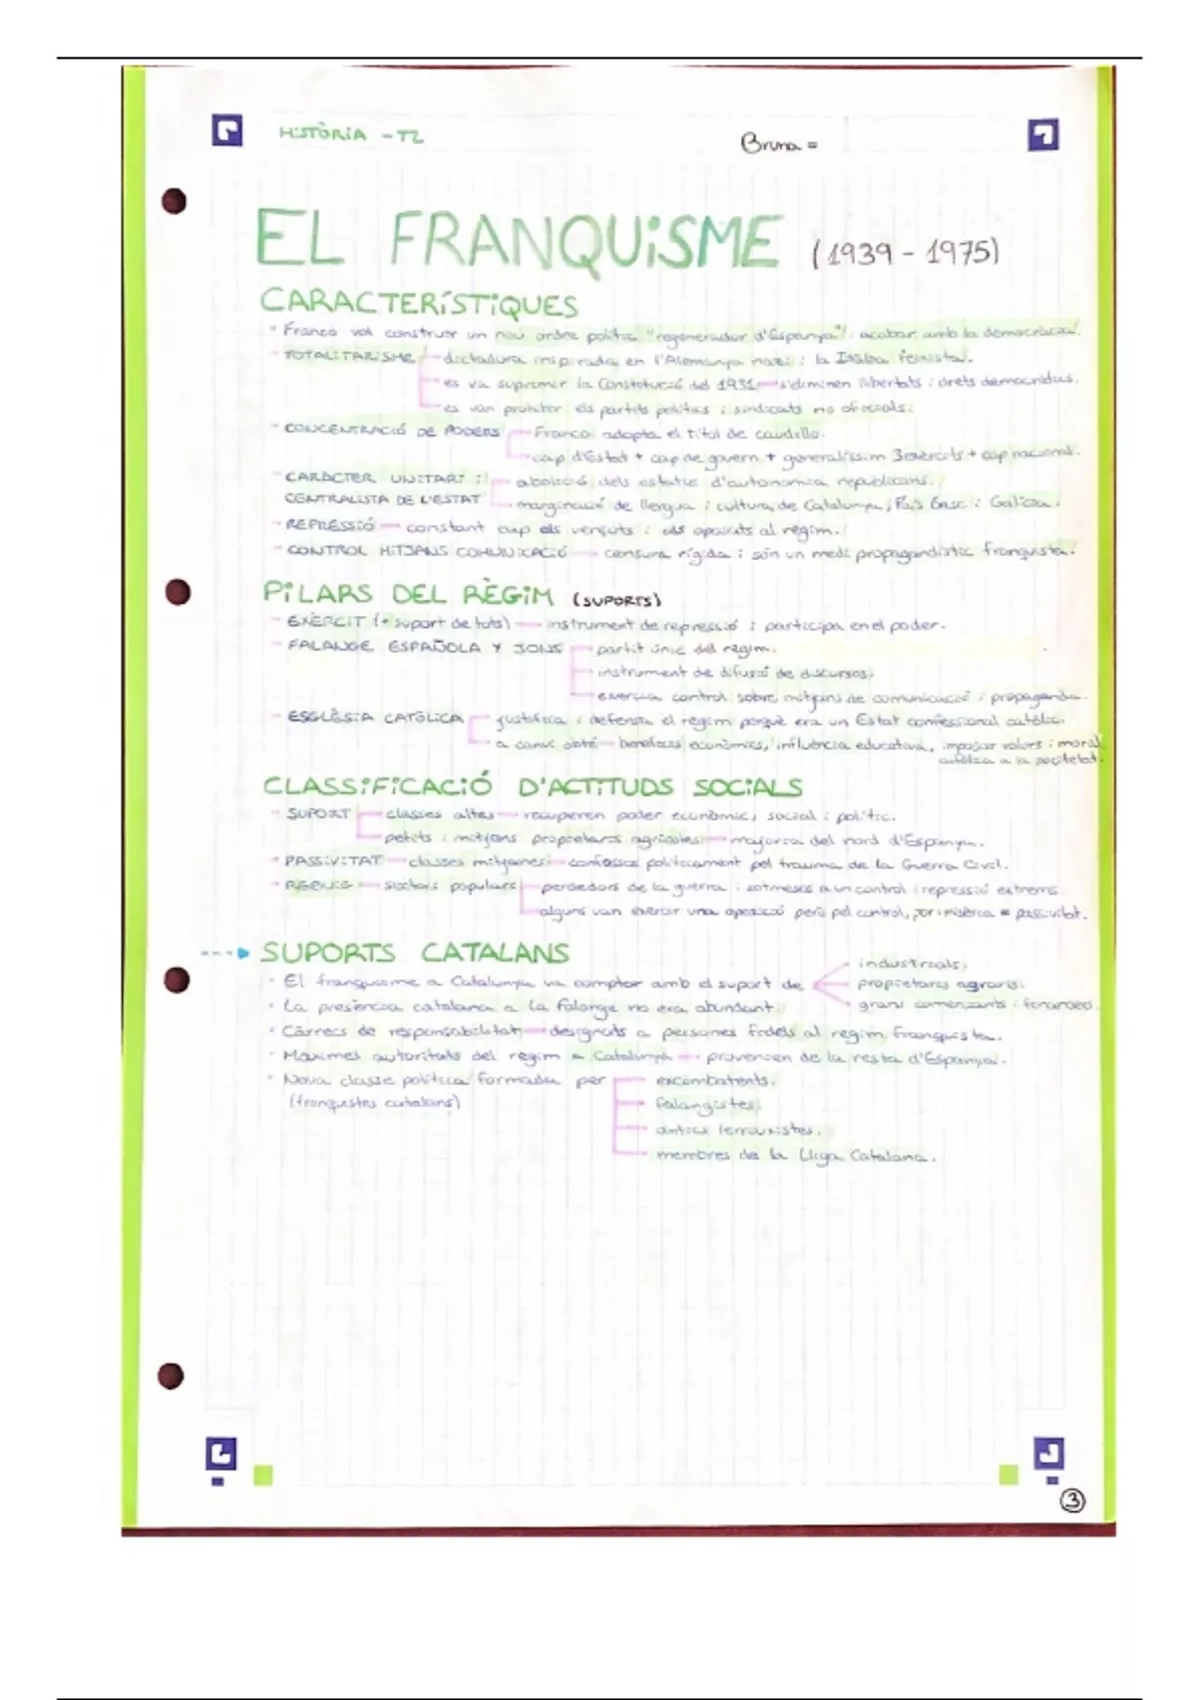 HiSTÒRiA - T2
Bruna =
EL FRANQUiSME (1939 - 1975)
CARACTERíSTiQUES
Franco vol construir un nou ordre polític "regenerador d'Espanya" i acabar amb la democràcia.
TOTALITARISME dictadura inspirada en l'Alemanya nazi i la Itàlia feixista.
es va suprimir la Constitució del 1931 s'eliminen llibertats i drets democràtics.
es van prohibir els partits polítics i sindicats no oficials.
CONCENTRACIÓ DE PODERS Franco adopta el títol de caudillo.
cap d'Estat + cap de govern + generalíssim 3 exèrcits + cap nacional.
CARÀCTER UNITARI i abolició dels estatus d'autonomia republicans.
CENTRALISTA DE L'ESTAT marginació de llengua i cultura de Catalunya, País Basc i Galícia.
REPRESSIÓ constant cap els vençuts i els oposats al règim.
CONTROL MITJANS COMUNICACIÓ censura rígida i són un medi propagandístic franquista.
PiLARS DEL RÈGiM (SUPORTS)
EXÈRCIT (+ suport de tots) instrument de repressió i participa en el poder.
FALANGE ESPAÑOLA Y JONS partit únic del règim.
instrument de difusió de discursos.
exercia control sobre mitjans de comunicació i propaganda.
ESGLÉSIA CATÒLICA justifica i defensa el règim perquè era un Estat confessional catòlic.
a canvi obté beneficis econòmics, influència educativa, imposar valors i moral
catòlica a la societat.
CLASSiFiCACiÓ D'ACTiTUDS SOCiALS
SUPORT classes altes recuperen poder econòmic, social i polític.
petits i mitjans propietaris agrícoles majoria del nord d'Espanya.
PASSIVITAT classes mitjanes confessos políticament pel trauma de la Guerra Civil.
REBUIG sectors populars perdedors de la guerra i sotmesos a un control i repressió extrems
alguns van exercir una oposició però pel control, por i misèria = passivitat.
SUPORTS CATALANS
El franquisme a Catalunya va comptar amb el suport de
industrials.
propietaris agraris.
grans comerciants i
La presència catalana a la falange no era abundant.
Càrrecs de responsabilitat designats a persones fidels al règim franquista.
Màximes autoritats del règim a Catalunya provenien de la resta d'Espanya.
Nova classe política formada per excombatents.
(franquistes catalans) falangistes.
antics lerrouxistes.
membres de la Lliga Catalana.
3